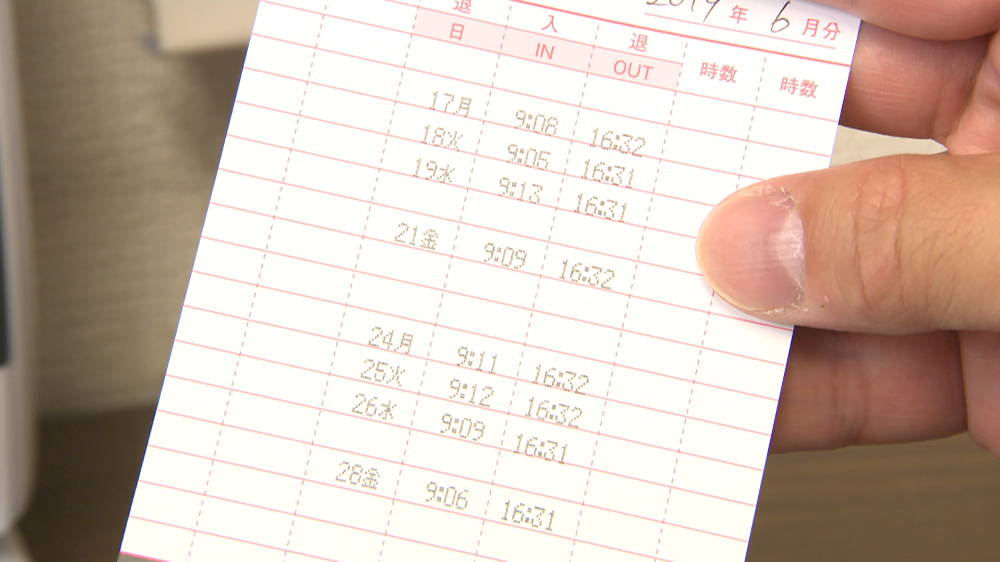 退 入 退 2019 年 6 月分
日 IN OUT 時数 時数
17月 9:08 16:32
18火 9:05 16:31
19水 9:13 16:31
21金 9:09 16:32
24月 9:11 16:32
25火 9:12 16:32
26水 9:09 16:31
28金 9:06 16:31